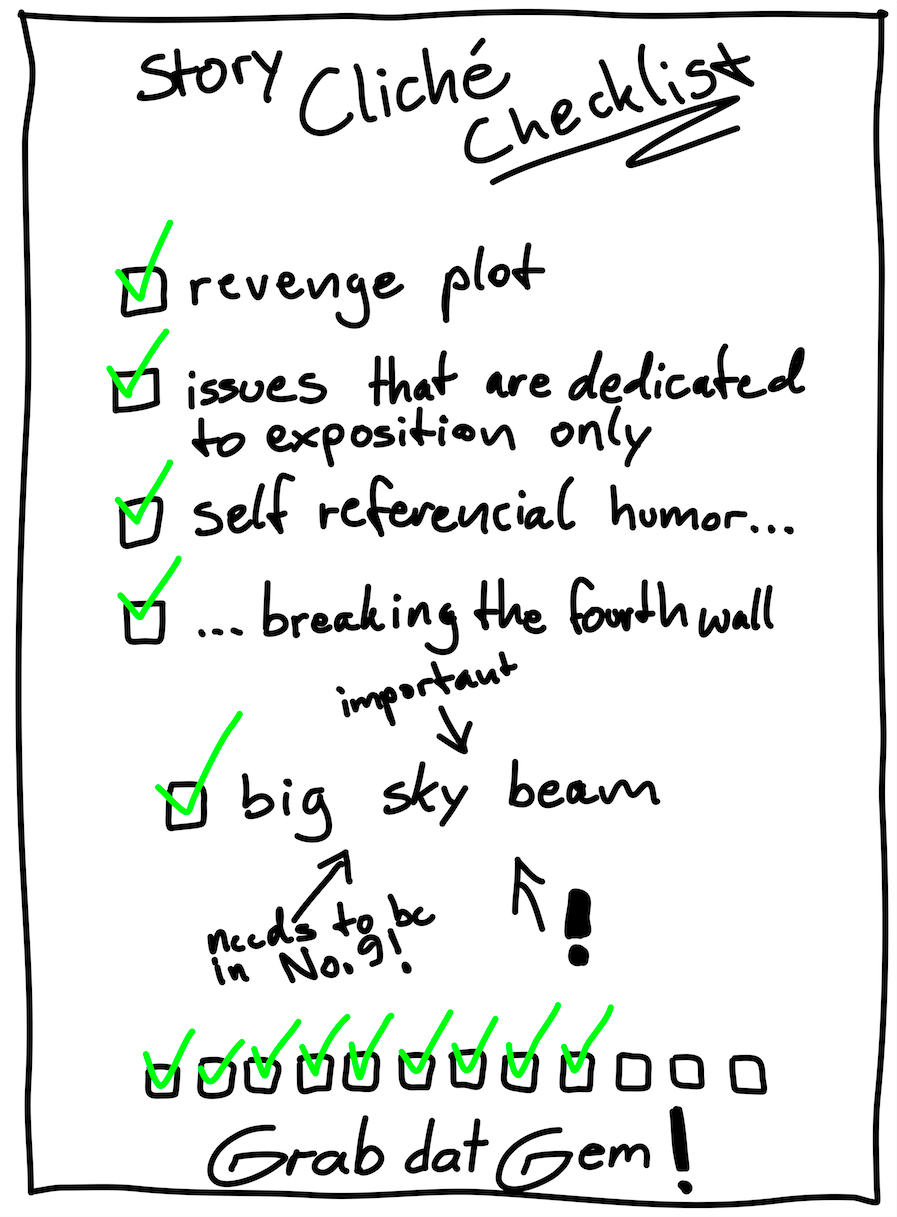 Story Cliché Checklist
revenge plot
issues that are dedicated
to exposition only
self referencial humor...
... breaking the fourth wall
important
big sky beam
needs to be
in No. 9!
!
Grab dat Gem!